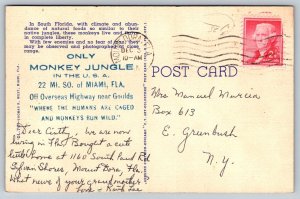 In South Florida, with climate and abun-
dance of natural foods so similar to their
native jungles, these monkeys live and thrive
in complete liberty.
With few enemies and no fear of man, they
may be observed and photographed at close
range.
ONLY
MONKEY JUNGLE
IN THE U. S. A.
22 MI. SO. of MIAMI, FLA.
Off Overseas Highway near Goulds
"WHERE THE HUMANS ARE CAGED
AND MONKEYS RUN WILD."
DEC
10-AM
POST CARD
Dear Cathy, we are now
living in Fla. Bought a cute
little home at 1160 South
Sylvan Shores, Mount Dora, Fla.
What news of your grandmother
Love
Mrs Manuel Murcia
Box 613
E. Greenbush
N.Y.